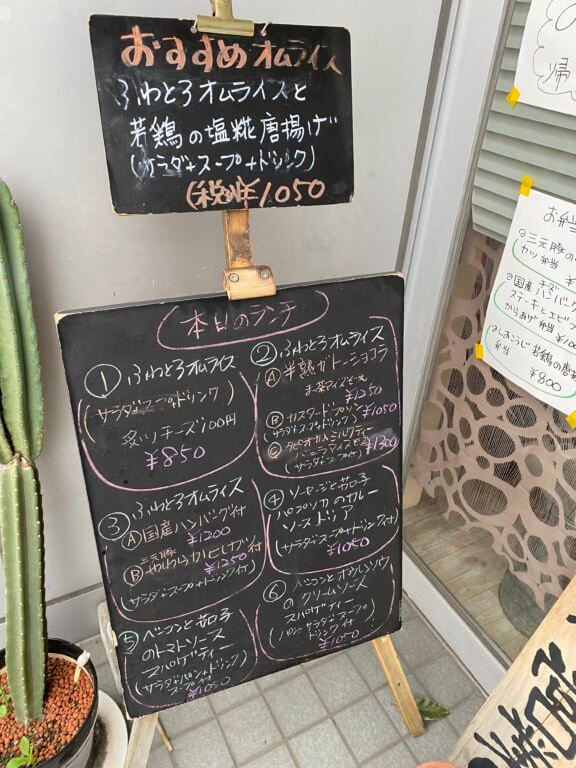 おすすめオムライス
ふわとろオムライスと
若鶏の塩糀唐揚げ
(サラダ+スープ+ドリンク)
(税別)¥1050
本日のランチ
① ふわとろオムライス
(サラダ+スープ+ドリンク)
炙りチーズ100円
¥850
② ふわとろオムライス
Ⓐ 半熟ガトーショコラ
¥1250
Ⓑ カスタードプリン
(サラダ+スープ+ドリンク) ¥1050
Ⓒ タピオカミルクティー
(サラダ+スープ付) ¥1300
③ ふわとろオムライス
Ⓐ 国産ハンバーグ付
¥1200
三元豚
Ⓑ やわらかヒレカツ付
¥1250
(サラダ+スープ+ドリンク付)
④ ソーセージと茄子
パプリカのカレー
ソースドリア
(サラダ+スープ+ドリンク付)
¥1050
⑤ ベーコンと茄子
のトマトソース
スパゲティー
(サラダ+パン+ドリンク)
スープ付
¥1050
⑥ ベーコンとホウレンソウ
のクリームソース
スパゲティー
(パン+サラダ+スープ
ドリンク付)
¥1050
帰
お弁当
三元豚の
カツ弁当
国産チーズハンバーグ
ステーキとエビフ
からあげ弁当
しおこうじ若鶏の唐揚
弁当
¥800